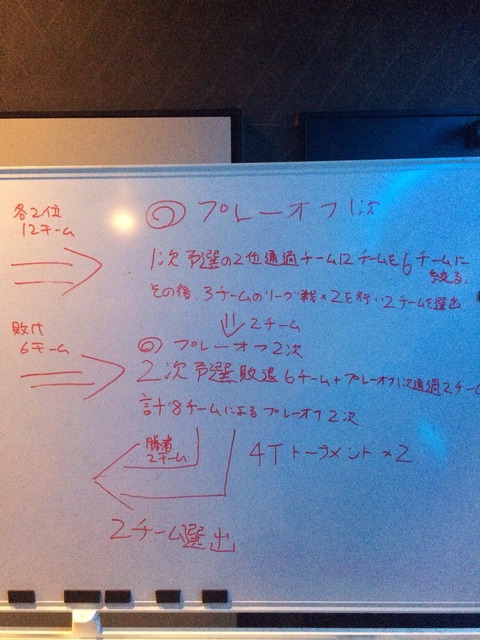 各2位
12チーム
◎ プレーオフ1次
1次予選の2位通過チーム12チームを6チームに
絞る。
その後、3チームのリーグ戦×2を行い2チームを選出
2チーム
敗け
6チーム
◎ プレーオフ2次
2次予選敗退6チーム+プレーオフ1次通過2チーム
計8チームによるプレーオフ2次
勝者
2チーム
4Tトーナメント×2
2チーム選出